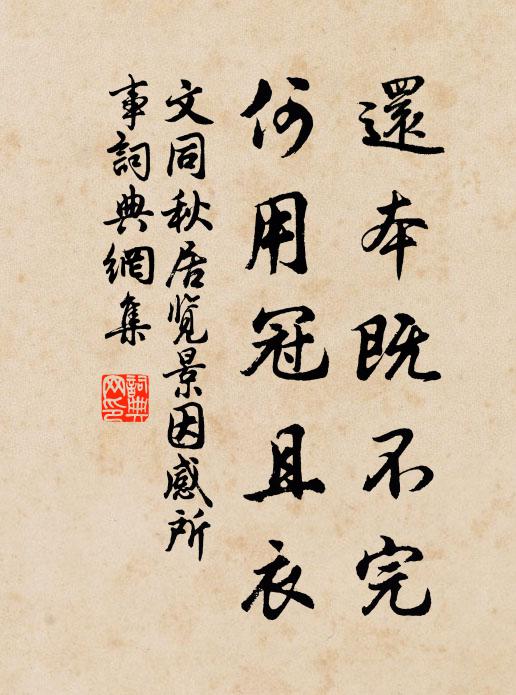 還本既不完
何用冠且衣
文同秋居览景因感所
事詞典網集
詞典
网印